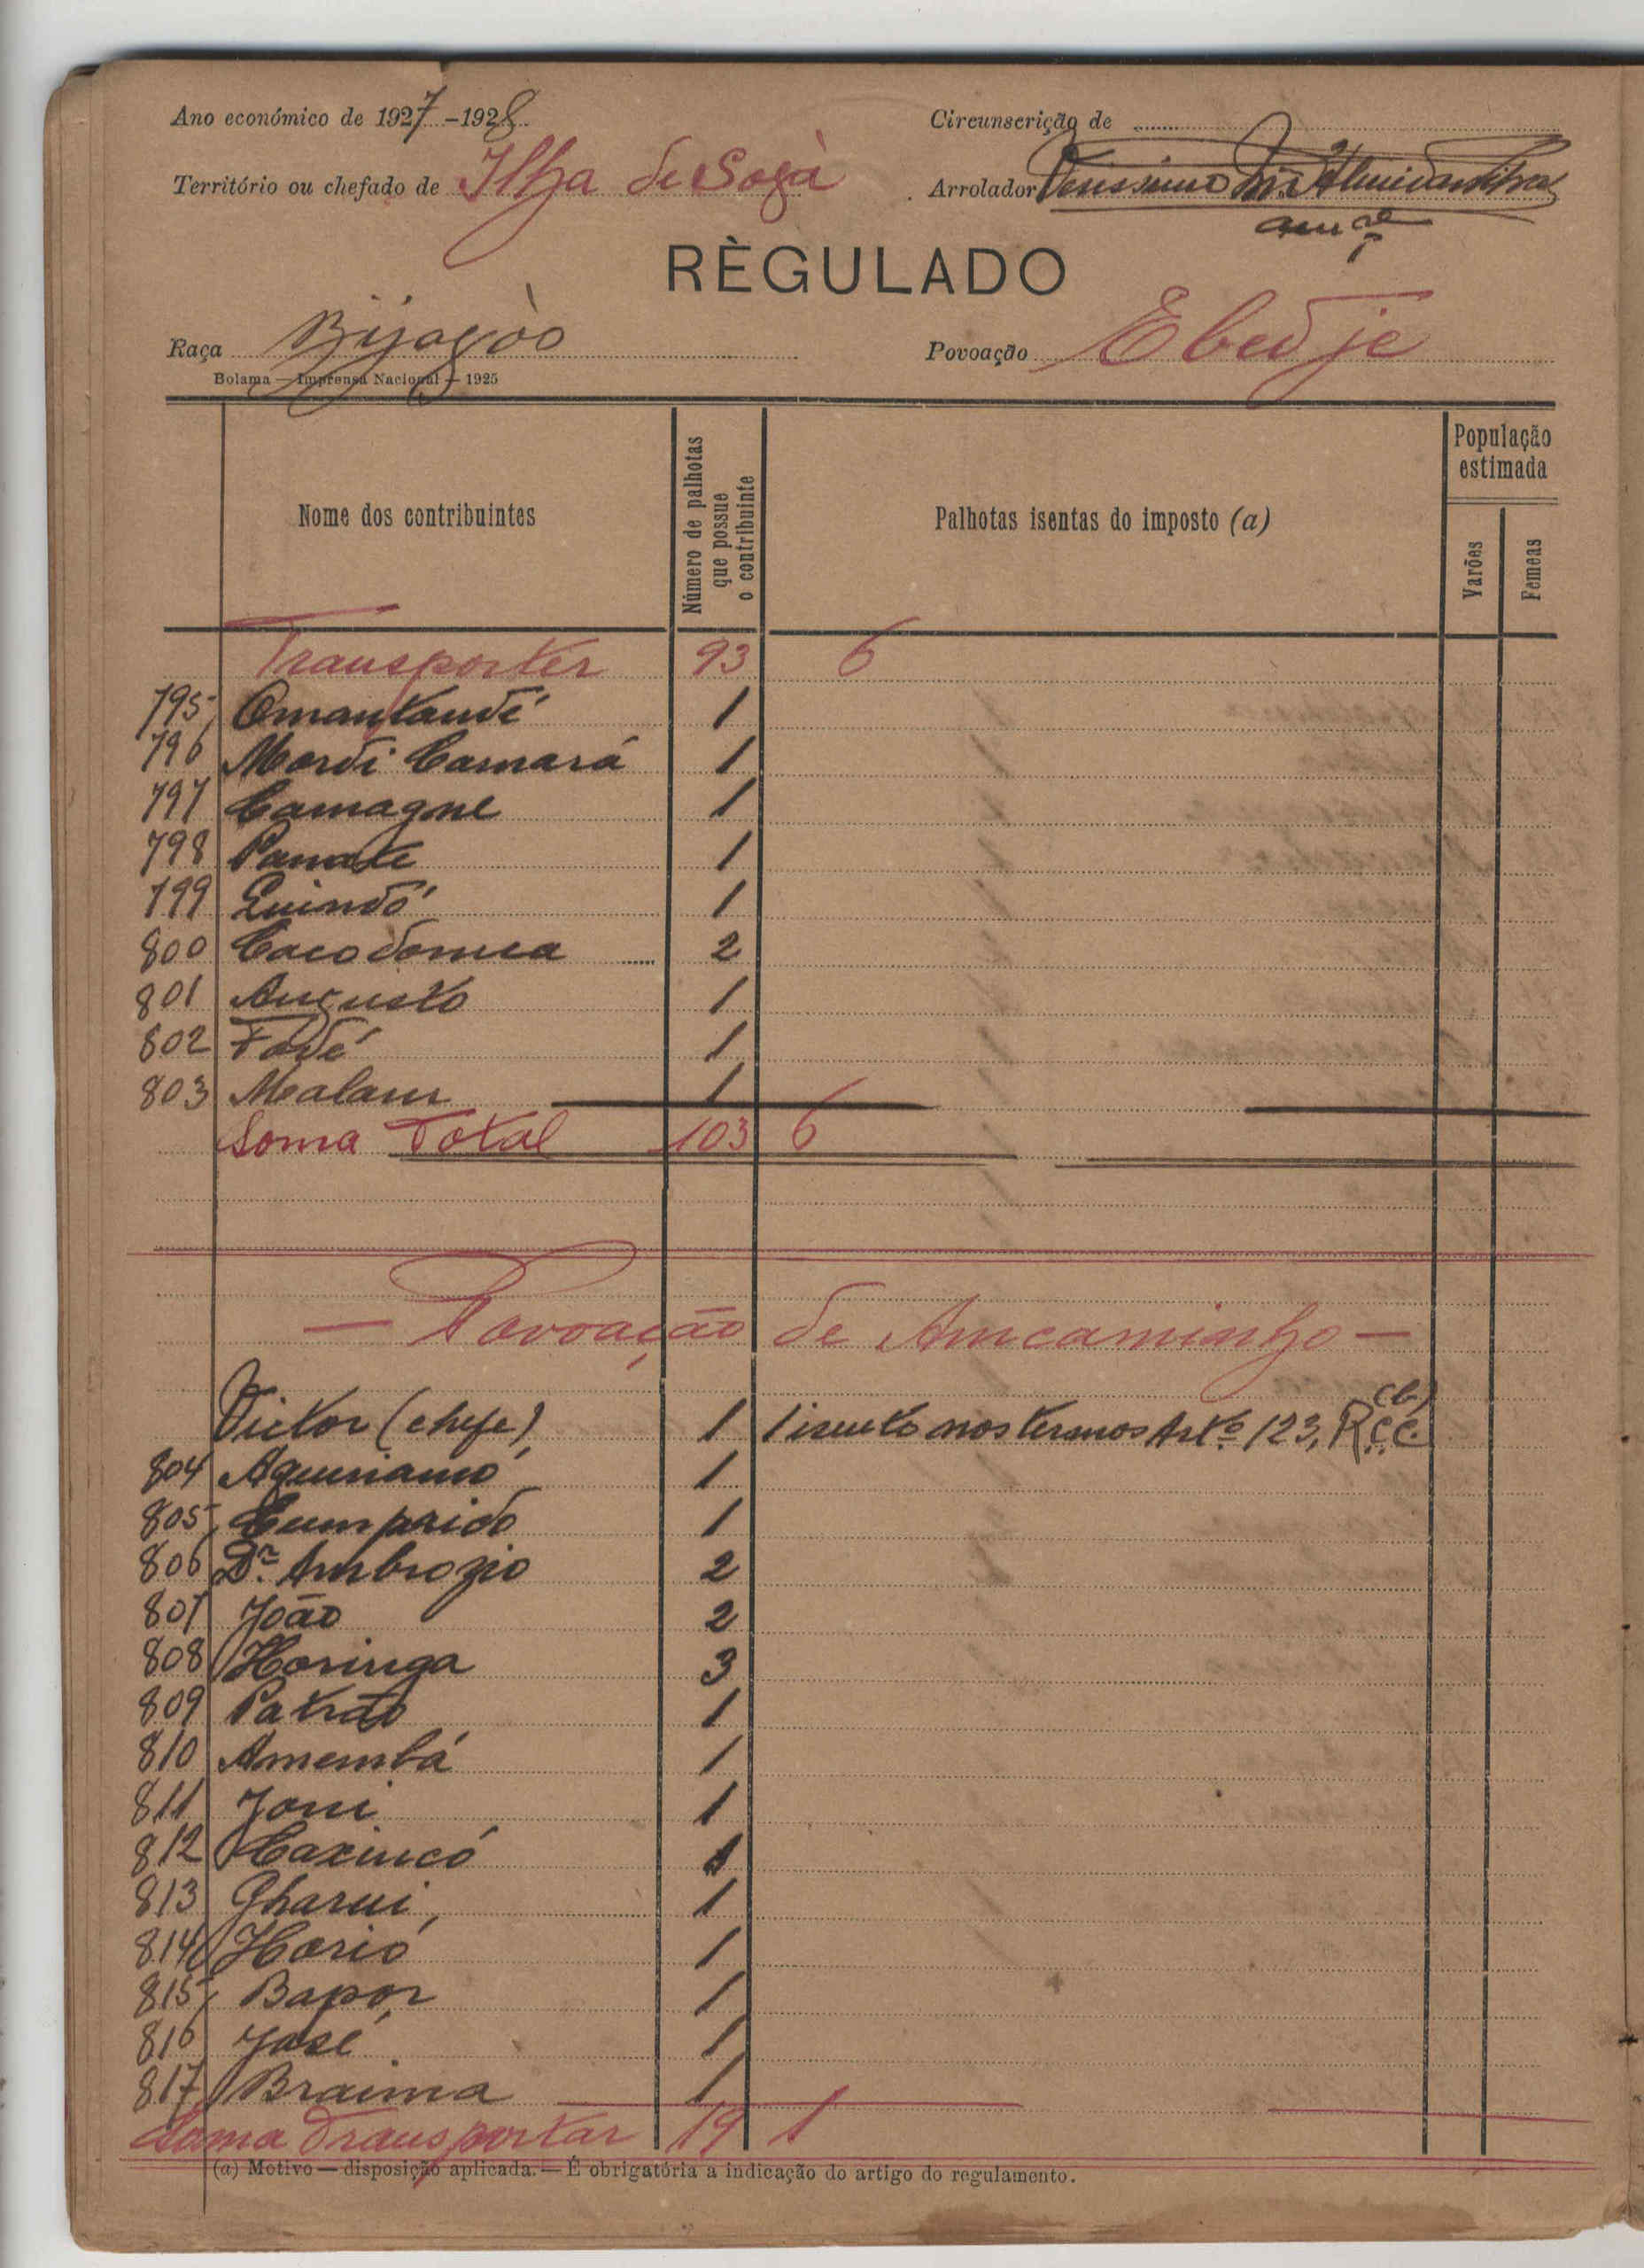 Ano económico de 1927-1928
Circunscrição de
Território ou chefado de Ilha de Sogà
Arrolador
RÈGULADO
Raça Bijagòs
Povoação Ebedje
Bolama — Imprensa Nacional — 1925
Nome dos contribuintes
Número de palhotas que possue o contribuinte
Palhotas isentas do imposto (a)
População estimada
Varões
Femeas
Transporter 93 6
795 Omantandé 1
796 Mordi Camará 1
797 Camagne 1
798 Panate 1
799 Quindó 1
800 2
801 Augusto 1
802 Fodé 1
803 Malam 1
Soma Total 103 6
— Povoação de Amcaminho —
Victor (chefe) 1 1 isento nos termos Artº 123, (b) R.C.C.
804 1
805 Cumprido 1
806 Dr. Ambrozio 2
807 João 2
808 Horinga 3
809 Patrão 1
810 Amembá 1
811 Joni 1
812 Caxincó 1
813 Gharui 1
814 Horió 1
815 Bapor 1
816 José 1
817 Braima 1
Soma Transportar 19 1
(a) Motivo — disposição aplicada. — É obrigatória a indicação do artigo do regulamento.